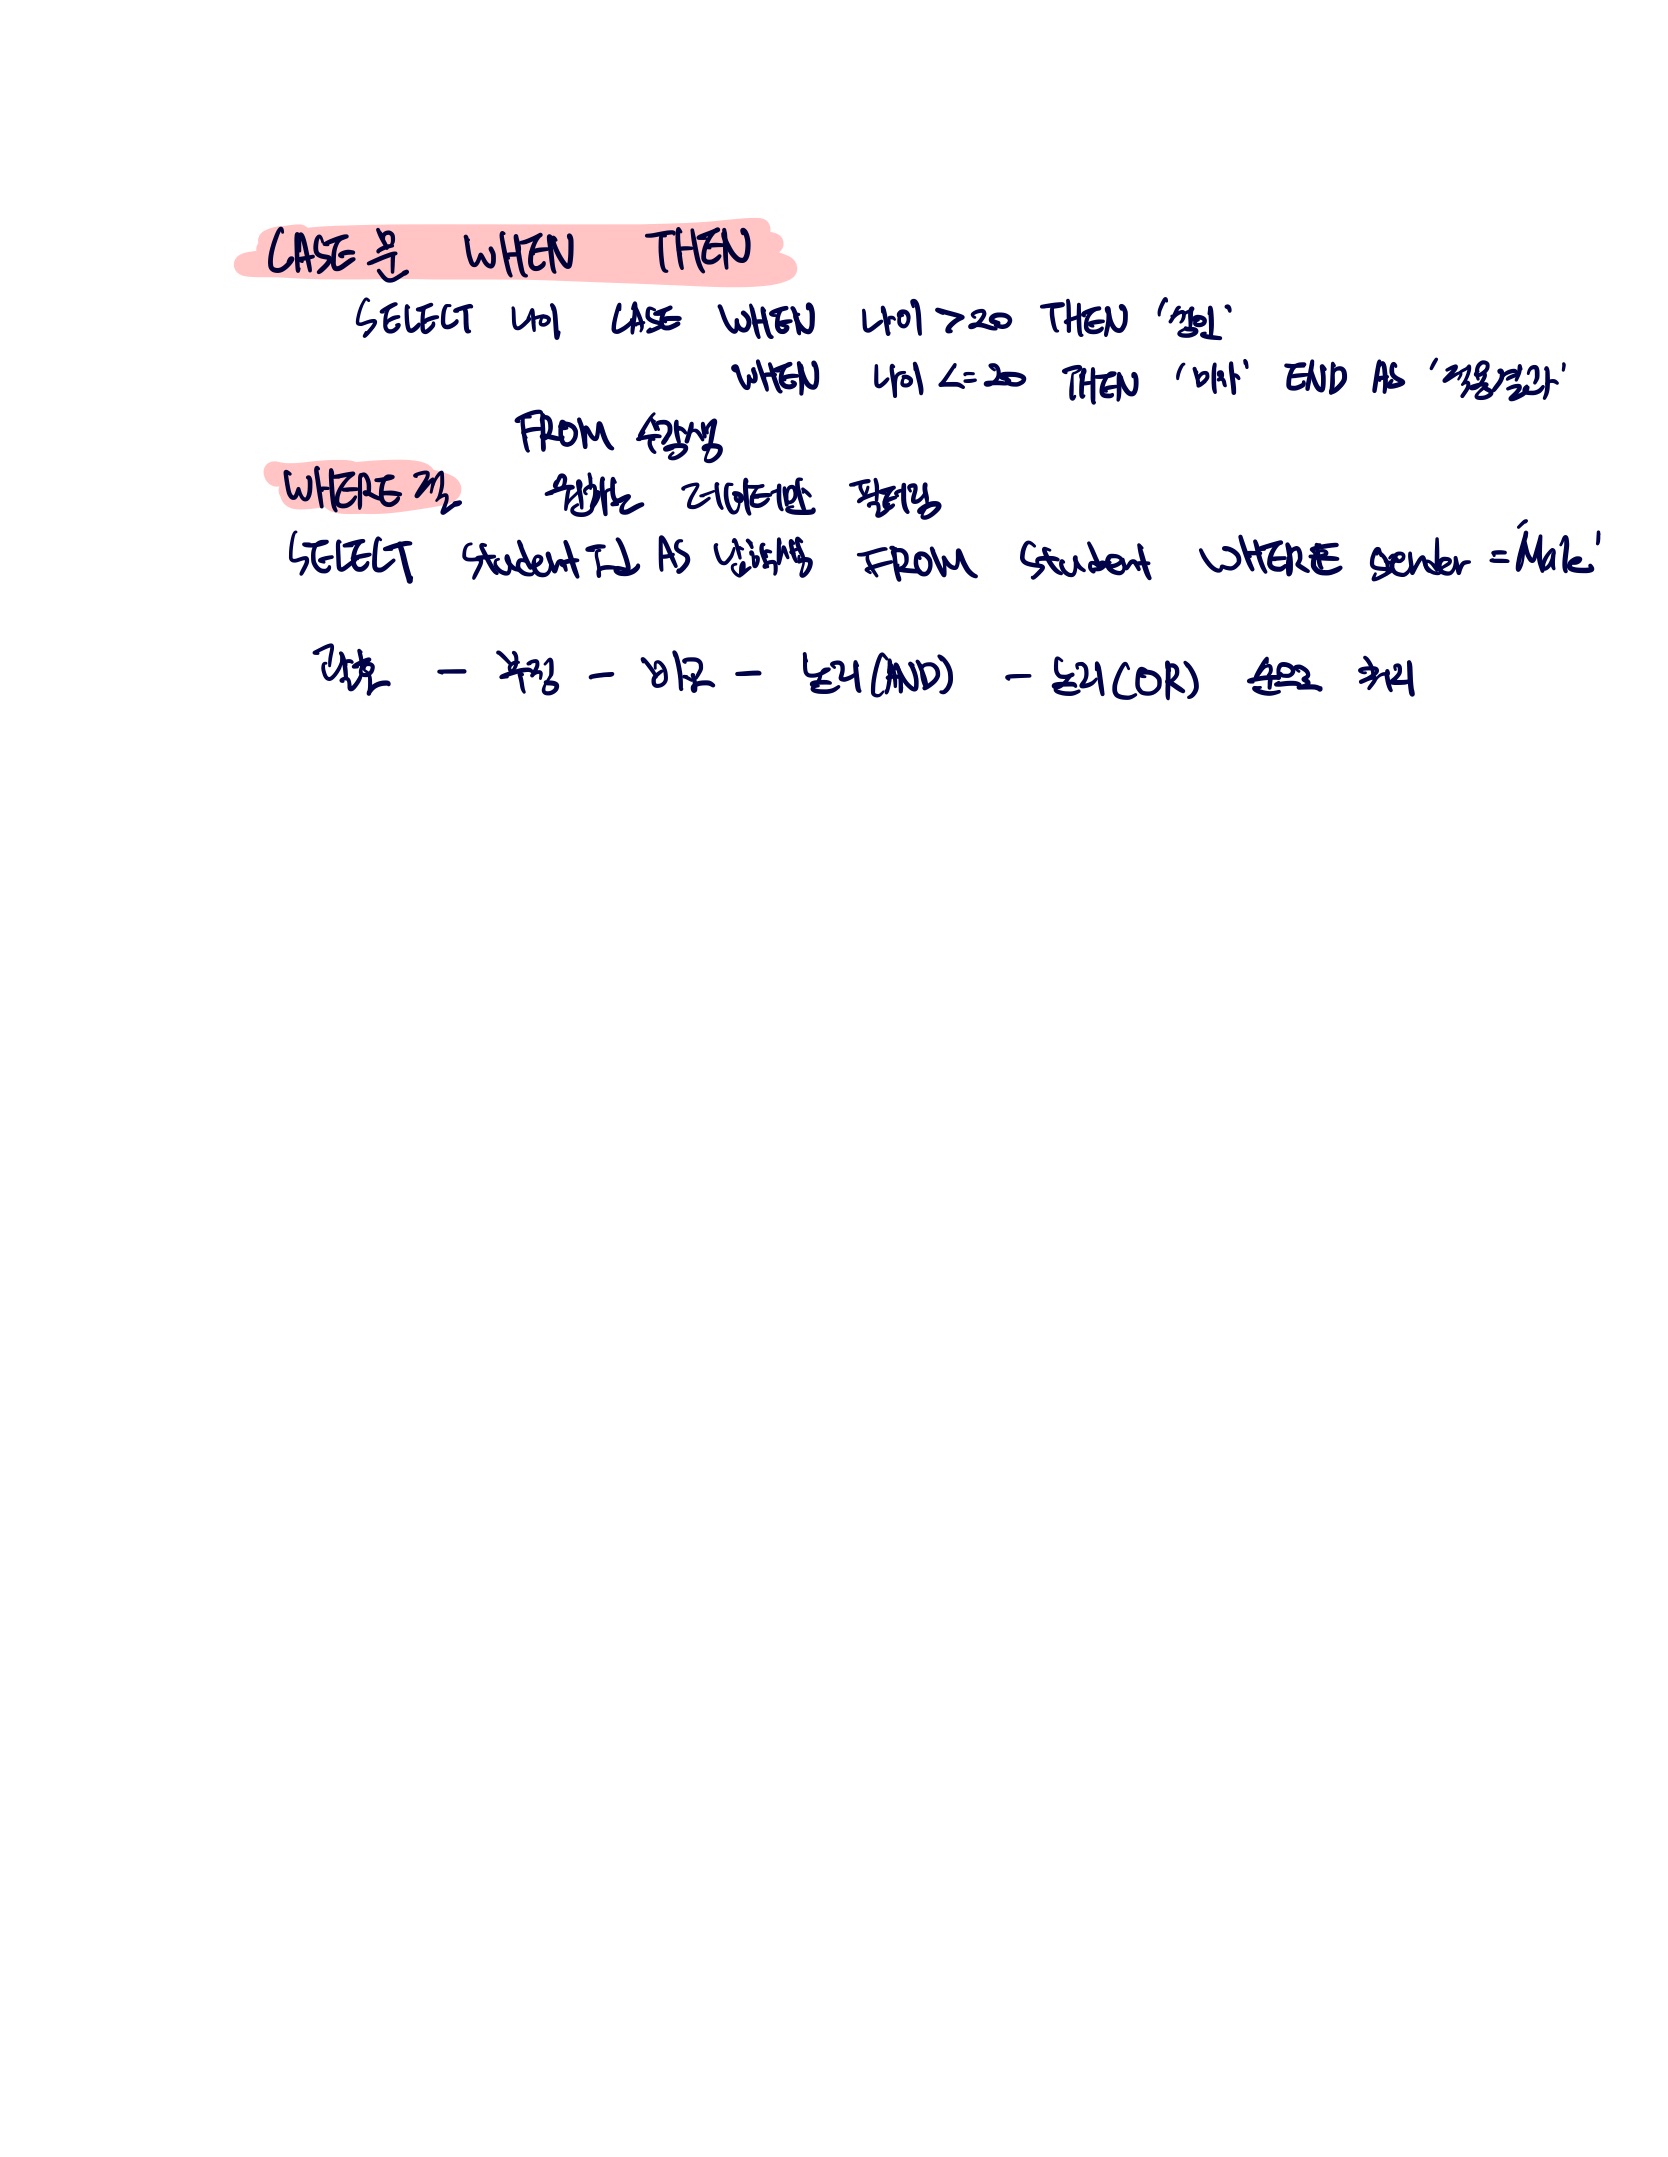 CASE문 WHEN THEN
SELECT 나이 CASE WHEN 나이 >20 THEN '성인'
WHEN 나이 <=20 THEN '미자' END AS '적용결과'
FROM 수강생
WHERE절 원하는 데이터만 필터링
SELECT StudentId AS 남학생 FROM Student WHERE gender ='Male'
괄호 - 부정 - 비교 - 논리(AND) - 논리(OR) 순으로 처리